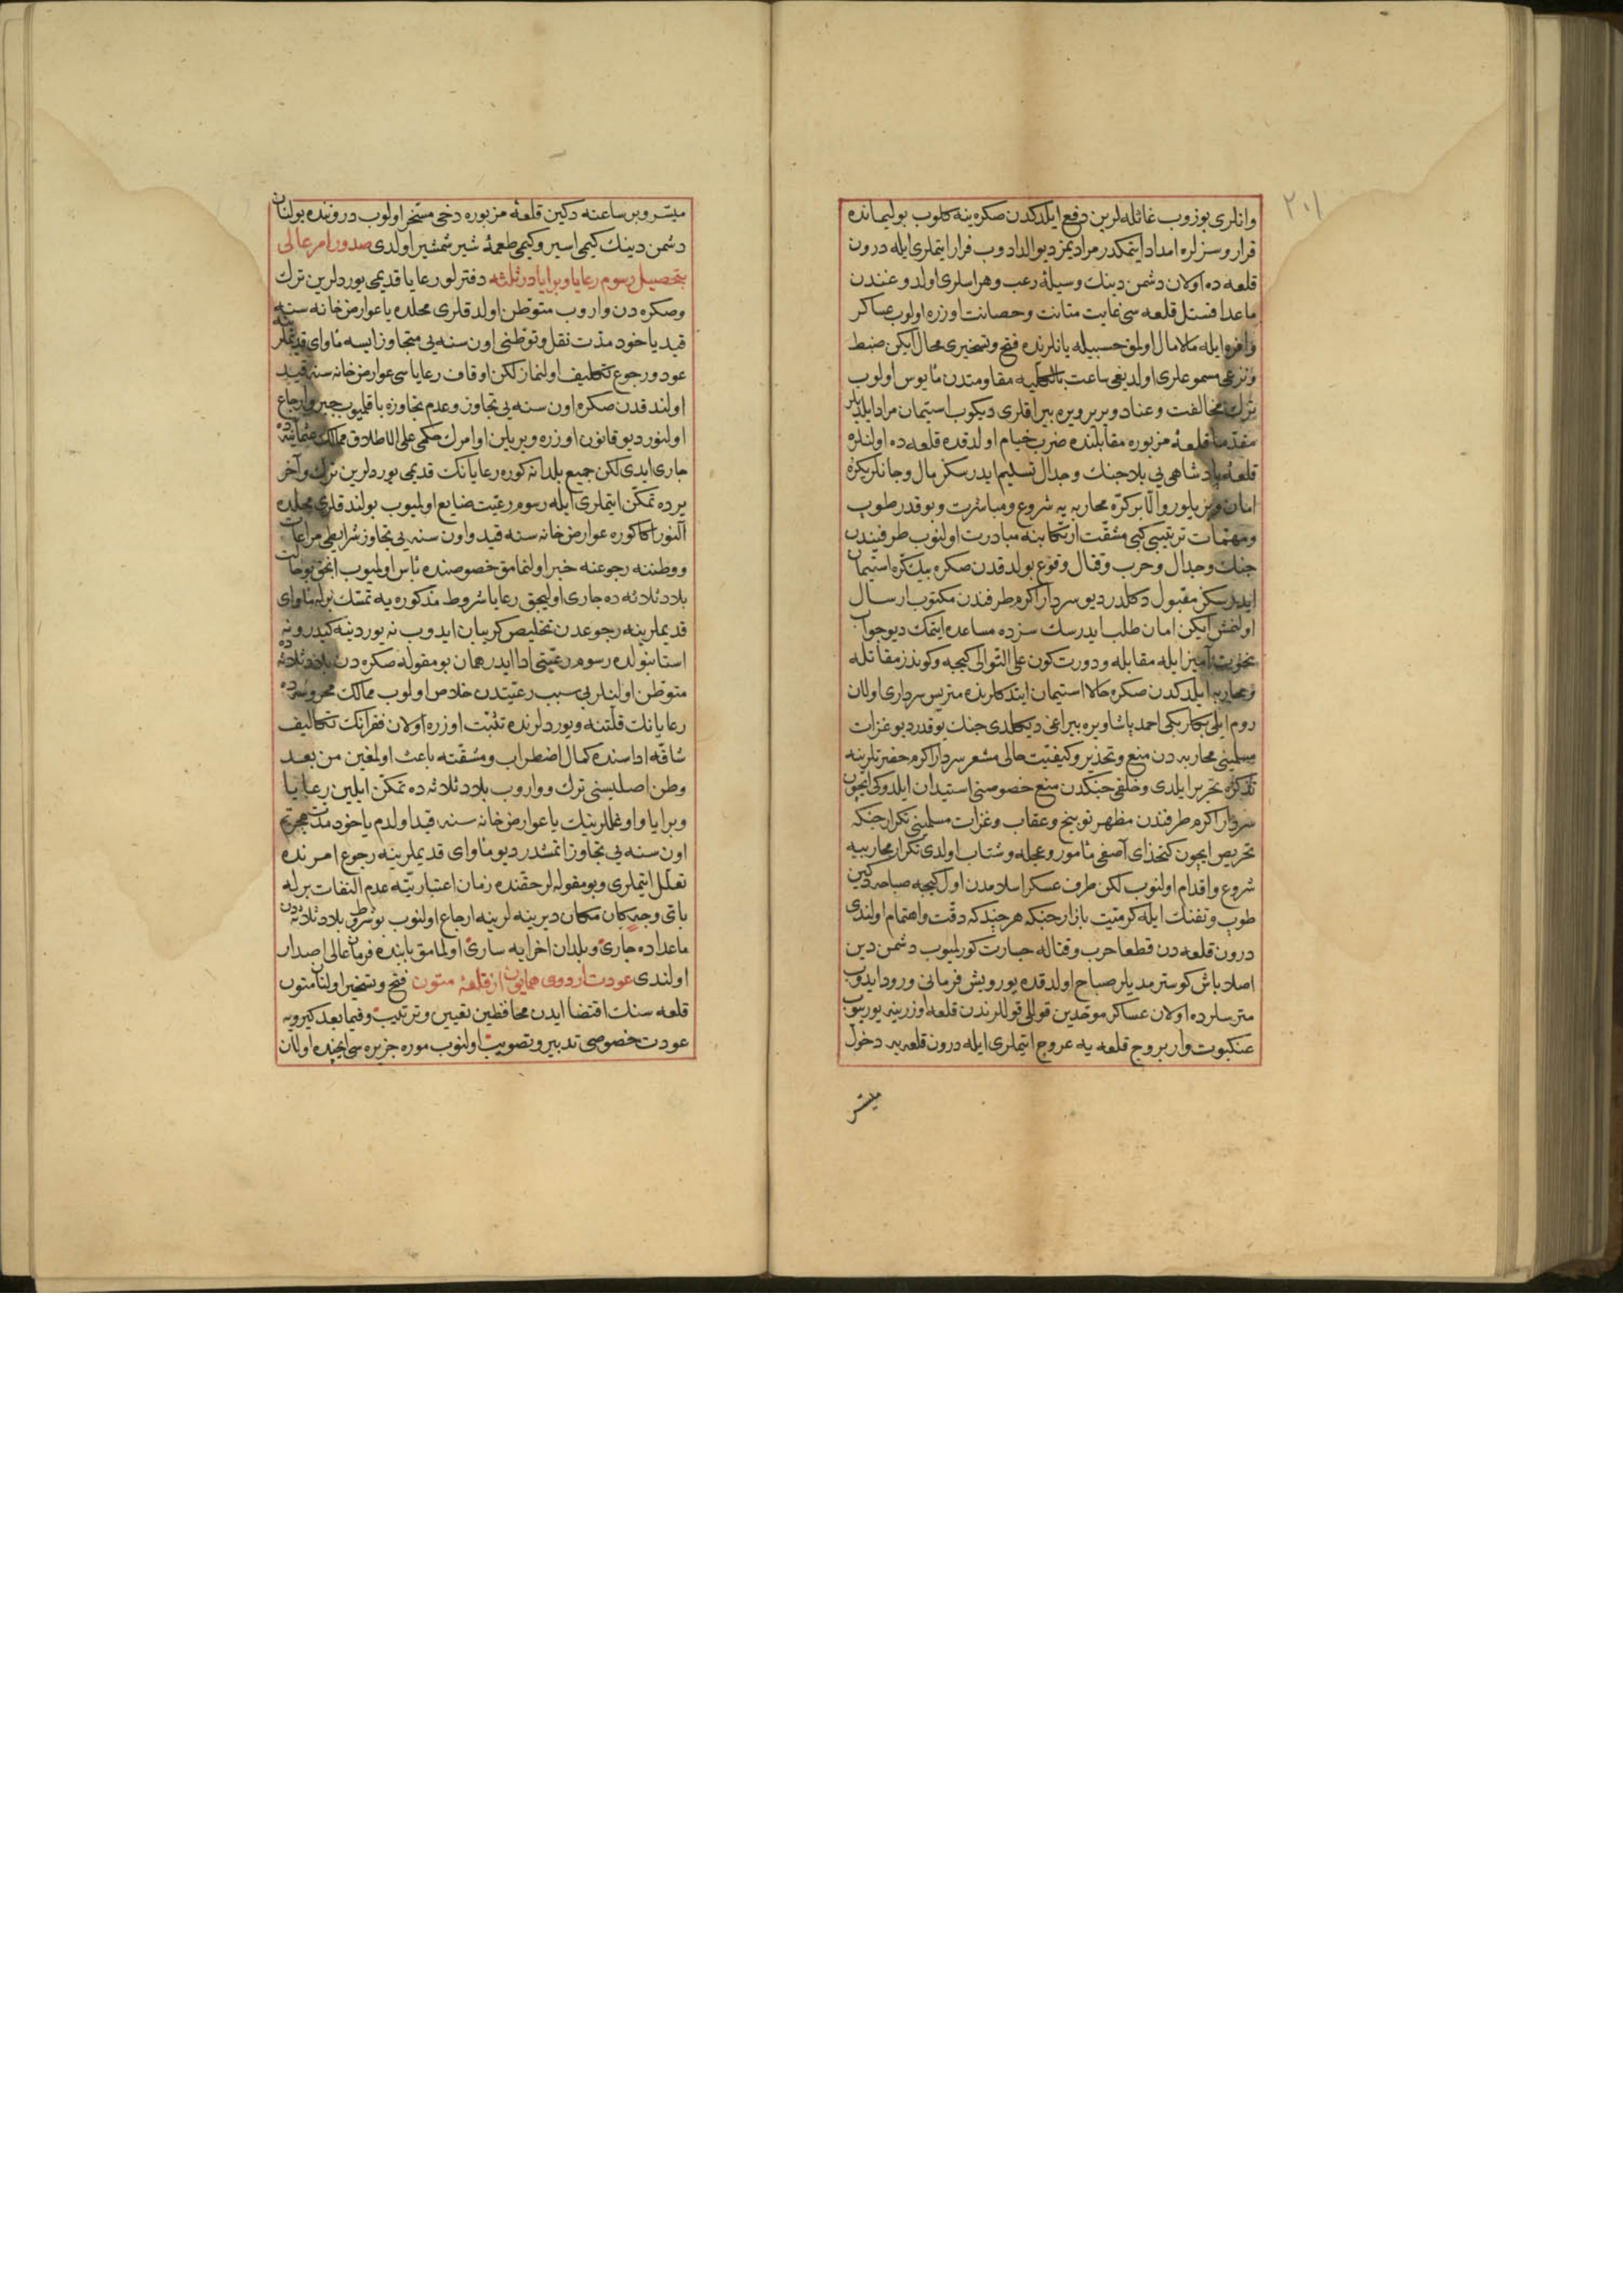 ٢٠١
وانلری بوزوب غائله لرین دفع ایلدکدن صکره ینه کلوب بولیمانده
قرار و سزلره امداد ایتمکدر مرادیمز دیو الدادوب فرار ایتملری ایله درون
قلعه ده اولان دشمن دینك وسیلهٔ رعب وهراسلری اولدوغندن
ماعدا فستل قلعه سی غایت متانت وحصانت اوزره اولوب عساکر
وافره ایله مالامال اولمق حسبیله یانلرنده فتح وتسخیری محال ایکن ضبط
ونزعی مسموعلری اولدیغی ساعت بالکلیه مقاومتدن مأیوس اولوب
ترك مخالفت وعناد و بربر ویره بیراقلری دیکوب استیمان مراد ایلدیلر
مقدما قلعهٔ مزبوره مقابلنده ضرب خیام اولدقده قلعه ده اولنلره
قلعهٔ پادشاهی یی بلا جنك وجدال تسلیم ایدرسکز مال وجانلریکزه
امان ویریلور والّا برکرّه محاربه یه شروع ومباشرت وبوقدر طوپ
ومهمّات ترتیبی کبی مشقّت ارتکابنه مبادرت اولنوب طرفیندن
جنك وجدال وحرب وقتال وقوع بولدقدن صکره بیك کرّه استیمان
ایدرسکز مقبول دکلدر دیو سردار اکرم طرفندن مکتوب ارسال
اولنمش ایکن امان طلب ایدرسك سزده مساعده ایتمك دیو جواب
نخوت آمیز ایله مقابله و دورت کون علی التوالی کیجه وکوندز مقاتله
ومحاربه ایلدکدن صکره حالا استیمان ایتدکلرنده متریس سرداری اولان
روم ایلی بکلربکی احمد پاشا ویره بیراغی دیکلدی جنك یوقدر دیو غزات
مسلمینی محاربه دن منع وتحذیر وکیفیّت حالی مشعر سردار اکرم حضرتلرینه
تذکره تحریر ایلدی وخلقی جنکدن منع خصوصنی استیذان ایلدوکی ایچون
سردار اکرم طرفندن مظهر توبیخ وعقاب وغزات مسلمینی تکرار جنکه
تحریص ایچون کتخدای آصفی مأمور وعجله وشتاب اولدی تکرار محاربیه
شروع واقدام اولنوب لکن طرف عسکر اسلامدن اول کیجه صباحه دکین
طوپ وتفنك ایله کرمیّت بازار جنکه هر چند که دقّت واهتمام اولندی
درون قلعه دن قطعا حرب وقتاله جسارت کورلمیوب دشمن دین
اصلا باش کوسترمدیلر صباح اولدقده یورویش فرمانی ورود ایدوب
مترسلرده اولان عساکر موحّدین قوللی قوللرندن قلعه اوزرینه یوریوب
عنکبوت وار بروج قلعه یه عروج ایتملری ایله درون قلعه یه دخول
میسّر
میسّر و بر ساعته دکین قلعهٔ مزبوره دخی مسخّر اولوب درونده بولنان
دشمن دینك کیمی اسیر وکیمی طعمهٔ شیر شمشیر اولدی صدور امر عالی
بتحصیل رسوم رعایا و برایا در ثلثه دفترلو رعایا قدیمی یوردلرین ترك
وصکره دن واروب متوطّن اولدقلری محلده یا عوارض خانه سنه
قید یا خود مدّت نقل وتوطّنی اون سنه یی متجاوز ایسه مأوای قدیملرینه
عود ورجوع تکلیف اولنماز لکن اوقاف رعایاسی عوارض خانه سنه قید
اولندقدن صکره اون سنه یی تجاوز وعدم تجاوزه باقلمیوب جبر وارجاع
اولنور دیو قانون اوزره ویریلن اوامرك حکمی علی الاطلاق ممالك عثمانیّه ده
جاری ایدی لکن جمیع بلدانه کوره رعایانك قدیمی یوردلرین ترك وآخر
یرده تمکّن ایتملری ایله رسوم رعیّت ضایع اولمیوب بولندقلری محلده
آلنور اکا کوره عوارض خانه سنه قید واون سنه یی تجاوز شرایطی مراعات
ووطننه رجوعنه خبر اولنمامق خصوصنده بأس اولمیوب انجق بو حالت
بلاد ثلاثه ده جاری اولیجق رعایا شروط مذکوره یه تمسّك برله مأوای
قدیملرینه رجوعدن تخلیص کریبان ایدوب نه یوردینه کیدر ونه
استانبولده رسوم رعیّتی ادا ایدر همان بو مقوله صکره دن بلاد ثلاثه ده
متوطّن اولنلر بی سبب رعیّتدن خلاص اولوب ممالك محروسه ده
رعایانك قلّتنه ویوردلرنده تثبّت اوزره اولان فقرانك تکالیف
شاقّه اداسنده کمال اضطراب ومشقّته باعث اولمغین من بعد
وطن اصلیسنی ترك وواروب بلاد ثلاثه ده تمکّن ایلین رعایا
وبرایا واوغللرینك یا عوارض خانه سنه قید اولدم یا خود مدّت هجرتم
اون سنه یی تجاوز اتمشدر دیو مأوای قدیملرینه رجوع امرنده
تعلّل ایتملری وبو مقوله لر حقنده زمان اعتبارینه عدم التفات برله
بای وجه کان مکان دیرینه لرینه ارجاع اولنوب بو شرط بلاد ثلاثه دن
ماعداده جاری وبلدان اخرایه ساری اولمامق بابنده فرمان عالی اصدار
اولندی عودت اردوی همایون از قلعهٔ متون فتح وتسخیر اولنان متون
قلعه سنك اقتضا ایدن محافظین تعیین وترتیب وفیما بعد کیرویه
عودت خصوصی تدبیر وتصویب اولنوب موره جزیره سی ایچنده اولان